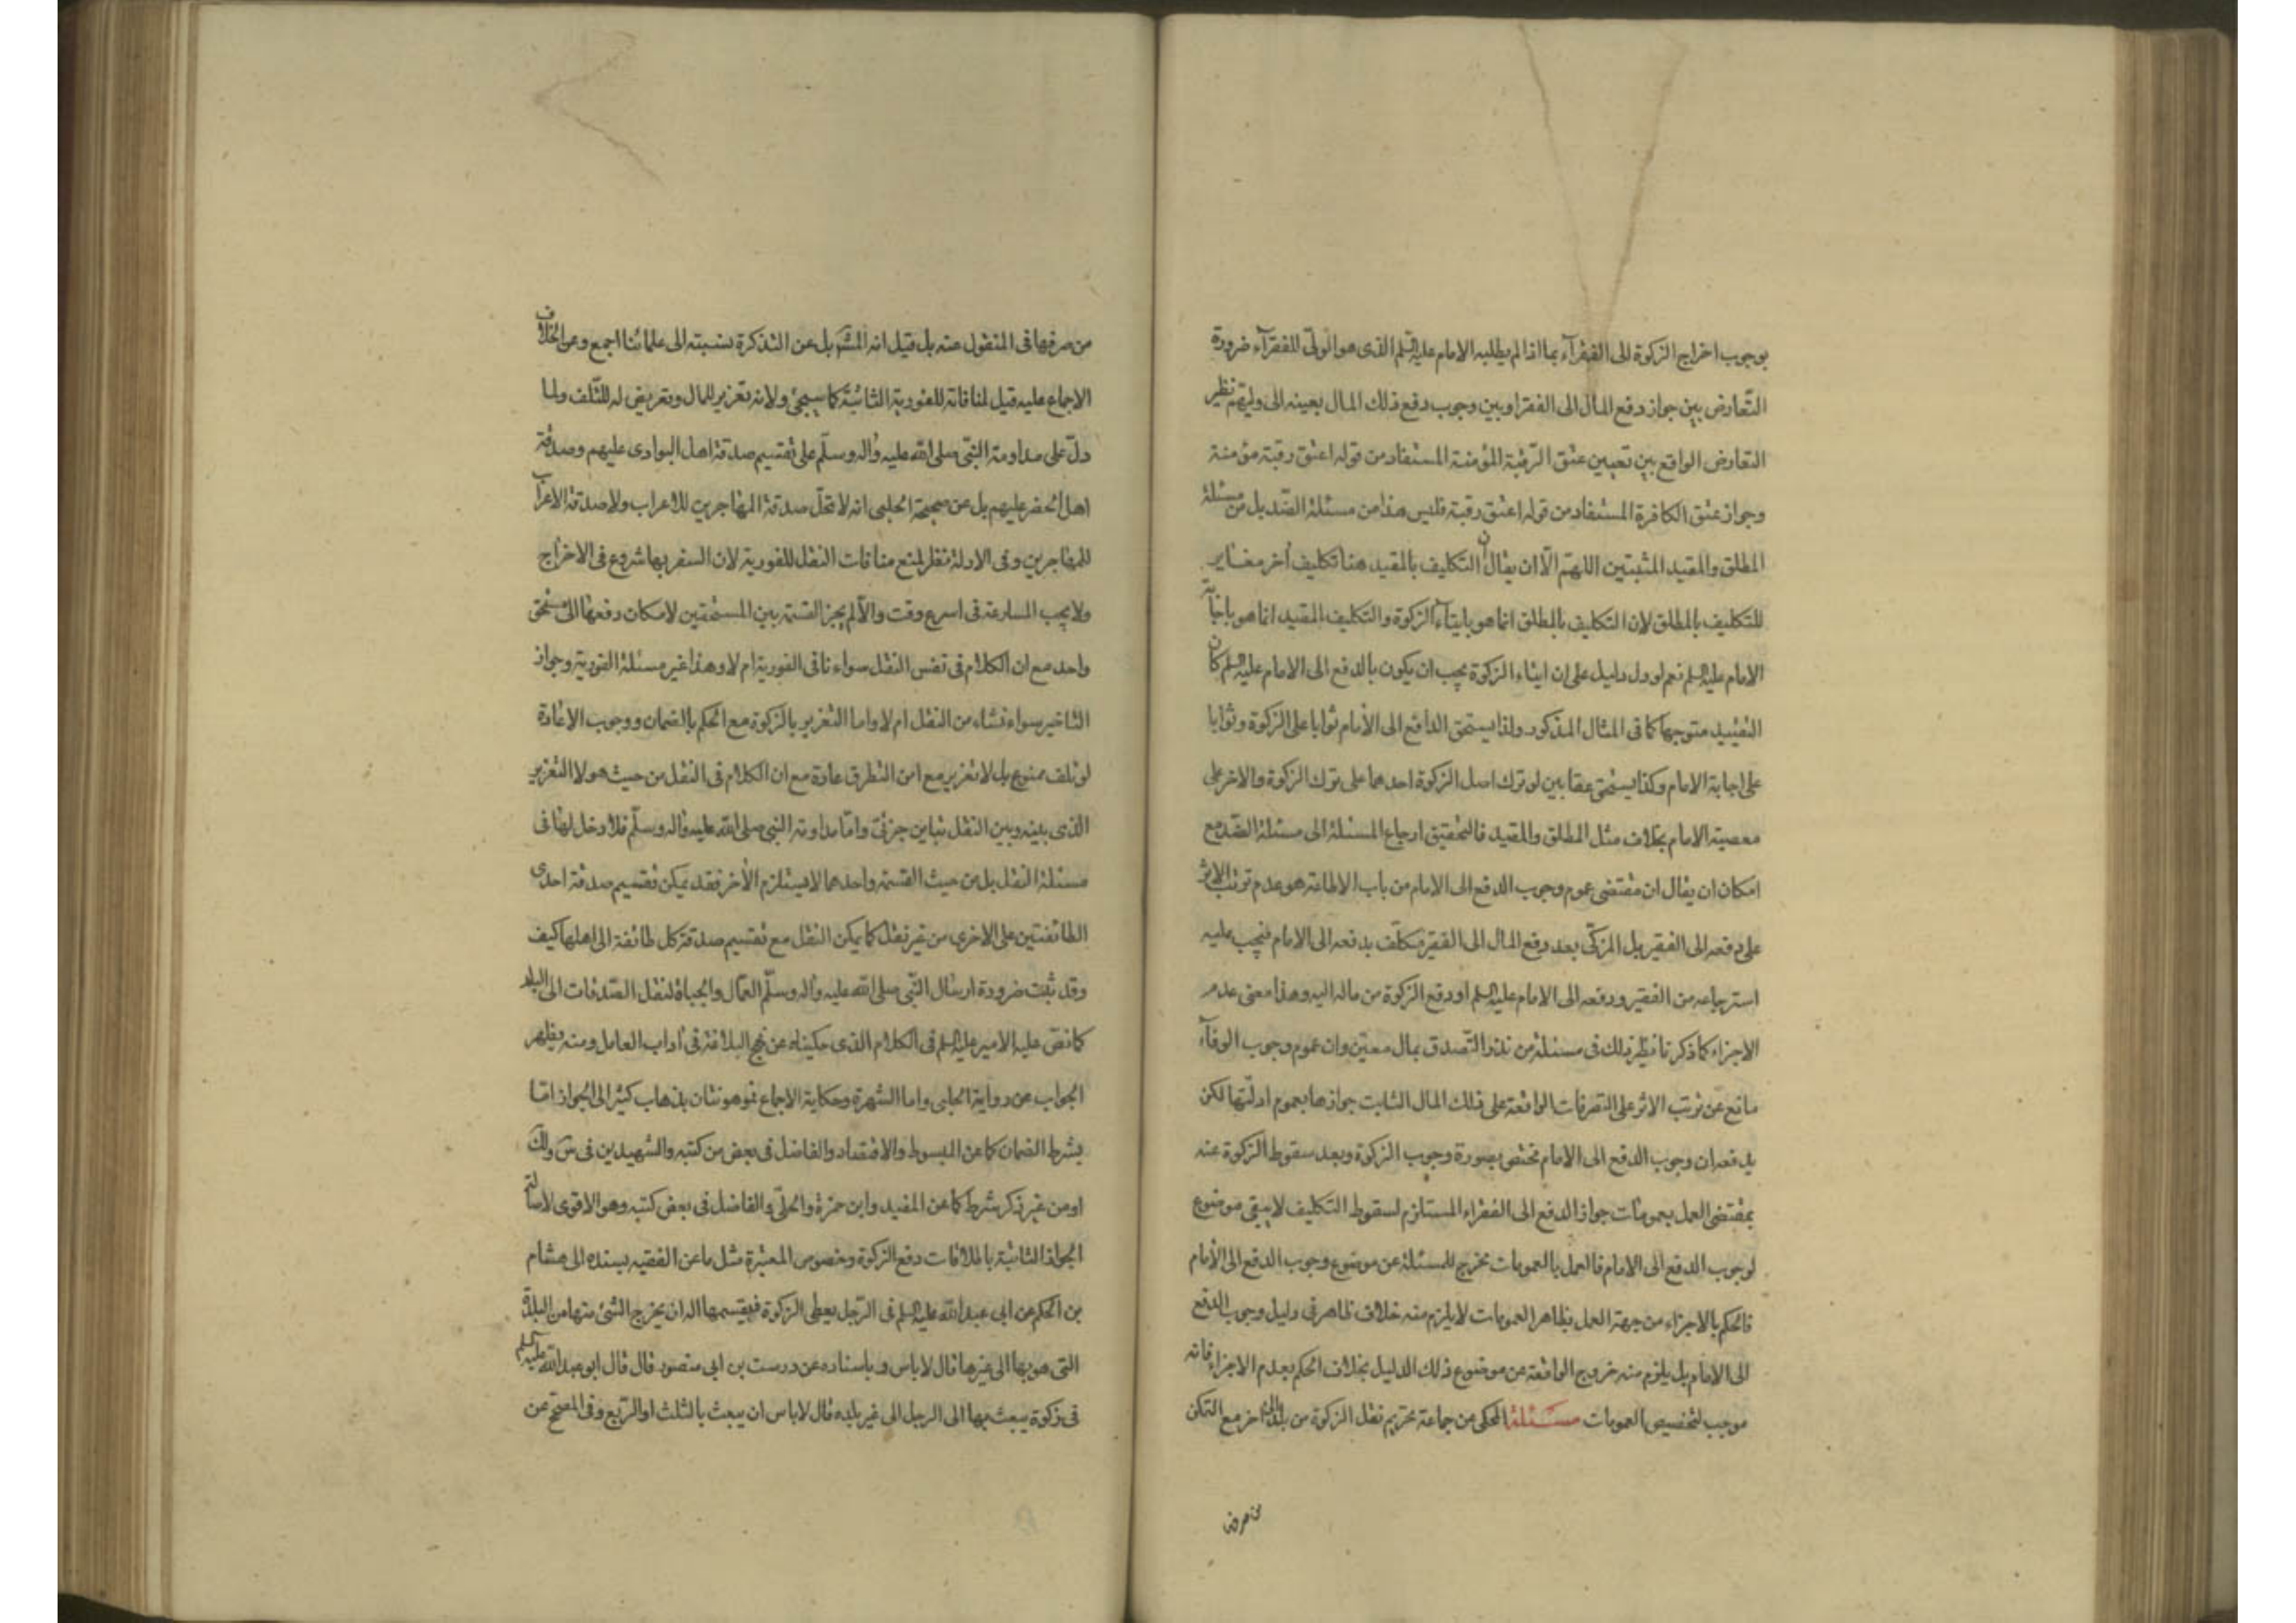 بوجوب اخراج الزكوة الى الفقرآء بما اذا لم يطلبه الامام عليه السلم الذى هو الولىّ للفقرآء ضرورة
التّعارض بين جواز دفع المال الى الفقرا وبين وجوب دفع ذلك المال بعينه الى وليّهم نظير
التعارض الواقع بين تعيين عتق الرّقبة المؤمنة المستفاد من قوله اعتق رقبة مؤمنة
وجواز عتق الكافرة المستفاد من قوله اعتق رقبة فليس هذا من مسئلة الضّد بل من مسئلة
المطلق والمقيد المثبتين اللهمّ الّا ان يقال ان التكليف بالمقيد هنا تكليف اخر مغاير
للتكليف بالمطلق لان التكليف بالمطلق انما هو بايتآء الزكوة والتكليف المقيد انما هو باجابة
الامام عليه السلم نعم لو دل دليل على ان ايتاء الزكوة يجب ان يكون بالدفع الى الامام عليه السلم كان
التقييد متوجها كما فى المثال المذكور ولذا يستحق الدافع الى الأمام ثوابا على الزكوة وثوابا
على اجابة الامام وكذا يستحق عقابين لو ترك اصل الزكوة احدهما على ترك الزكوة والاخر على
معصية الامام بخلاف مثل المطلق والمقيد فالتحقيق ارجاع المسئلة الى مسئلة الضّد مع
امكان ان يقال ان مقتضى عموم وجوب الدفع الى الامام من باب الاطاعة هو عدم ترتب الاثر
على دفعه الى الفقير بل المزكّى بعد دفع المال الى الفقير مكلّف بدفعه الى الامام فيجب عليه
استرجاعه من الفقير ودفعه الى الامام عليه السلم او دفع الزكوة من ماله اليه وهذا معنى عدم
الاجزاء كما ذكرنا نظير ذلك فى مسئلة من نذر التّصدق بمال معيّن وان عموم وجوب الوفآء
مانع عن ترتب الاثر على التصرفات الواقعة على ذلك المال الثابت جوازها بعموم ادلّتها لكن
يدفعه ان وجوب الدفع الى الامام مختص بصورة وجوب الزكوة وبعد سقوط الزكوة عنه
بمقتضى العمل بعمومات جواز الدفع الى الفقراء المستلزم لسقوط التكليف لا يبقى موضوع
لوجوب الدفع الى الامام فالعمل بالعمومات مخرج للمسئلة عن موضوع وجوب الدفع الى الأمام
فالحكم بالاجزاء من جهة العمل بظاهر العمومات لا يلزم منه خلاف ظاهر فى دليل وجوب الدفع
الى الامام بل يلزم منه خروج الواقعة عن موضوع ذلك الدليل بخلاف الحكم بعدم الاجزاء فانه
موجب لتخصيص العمومات مسئلة المحكى عن جماعة تحريم نقل الزكوة من بلد الى اخر مع التمكن
من صرفها
من صرفها فى المنقول عنه بل قيل انه المشهور بل عن التذكرة نسبته الى علمائنا اجمع وعن الخلاف
الاجماع عليه قيل لمنافاته للفورية الثابتة كما سيجئ ولانه تغرير للمال وتعريض له للتّلف ولما
دلّ على مداومة النبّى صلى الله عليه واله وسلّم على تقسيم صدقة اهل البوادى عليهم وصدقة
اهل الحضر عليهم بل عن صحيحة الحلبى انه لا تحلّ صدقة المهاجرين للاعراب ولا صدقة الاعراب
للمهاجرين وفى الادلة نظر لمنع منافات النقل للفورية لان السفر بها شروع فى الاخراج
ولا يجب المسارعة فى اسرع وقت والّا لم يجز القسمة بين المستحقين لامكان دفعها الى مستحق
واحد مع ان الكلام فى نفس النقل سواء نافى الفورية ام لا وهذا غير مسئلة الفورية وجواز
التاخير سواء نشاء من النقل ام لا واما التغرير بالزكوة مع الحكم بالضمان ووجوب الاعادة
لو تلف ممنوع بل لا تغرير مع امن الطرق عادة مع ان الكلام فى النقل من حيث هو لا التغرير
الذى بينه وبين النقل تباين جزئىّ وامّا مداومة النبى صلى الله عليه واله وسلّم فلا دخل لها فى
مسئلة النقل بل من حيث القسمة واحدهما لا يستلزم الأخر فقد يمكن تقسيم صدقة احدى
الطائفتين على الاخرى من غير نقل كما يمكن النقل مع تقسيم صدقة كل طائفة الى اهلها كيف
وقد ثبت ضرورة ارسال النّبى صلى الله عليه واله وسلّم العمّال والجباة لنقل الصّدقات الى البلد
كما نصّ عليه الامير عليه السلم فى الكلام الذى حكيناه عن نهج البلاغة فى اداب العامل ومنه يظهر
الجواب عن رواية الحلبى واما الشهرة وحكاية الاجماع فموهونتان بذهاب كثير الى الجواز امّا
بشرط الضمان كما عن المبسوط والاقتصاد والفاضل فى بعض من كتبه والشهيدين فى س ولك
او من غير ذكر شرط كما عن المفيد وابن حمزة والحلّى والفاضل فى بعض كتبه وهو الاقوى لاصالة
الجواز الثابتة باطلاقات دفع الزكوة وخصوص المعتبرة مثل ما عن الفقيه بسنده الى هشام
بن الحكم عن ابى عبد الله عليه السلم فى الرّجل يعطى الزكوة فيقسمها اله ان يخرج الشئ منها من البلدة
التى هو بها الى غيرها قال لا باس وباسناده عن درست بن ابى منصور قال قال ابو عبد الله عليه السلم
فى زكوة يبعث بها الى الرجل الى غير بلده قال لا باس ان يبعث بالثلث او الرّبع وفى الصحيح عن